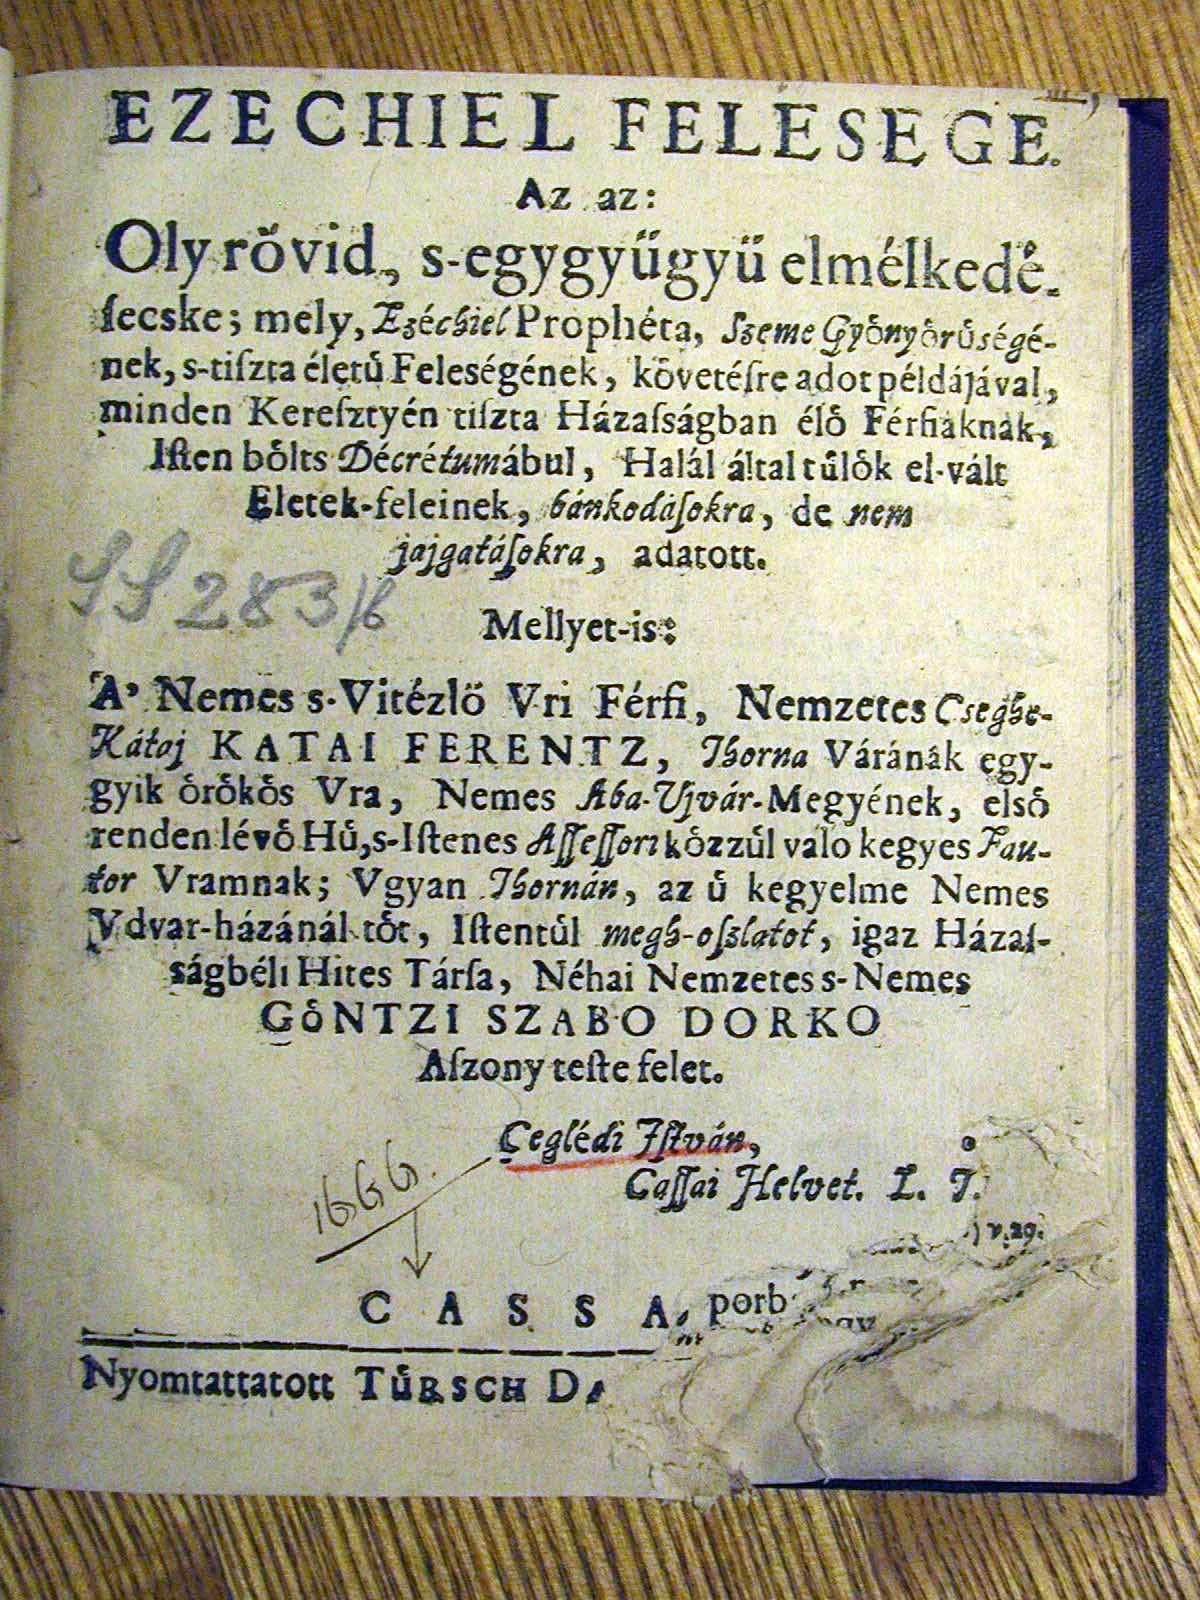 EZECHIEL FELESEGE.
Az az:
Oly rövid, s-egygyűgyű elmélkedé-
ſecske; mely, Ezéchiel Prophéta, Szeme Gyönyörűségé-
nek, s-tiſzta életű Feleségének, követéſre adot példájával,
minden Kereſztyén tiſzta Házaſságban élő Férfiaknak,
Iſten bőlts Décrétumábul, Halál által tűlök el-vált
Eletek-feleinek, bánkodáſokra, de nem
jajgatáſokra, adatott.
SS 283/b
Mellyet-is:
A' Nemes s-Vitézlő Vri Férfi, Nemzetes Cseghe-
Kátaj KATAI FERENTZ, Thorna Várának egy-
gyik örökös Vra, Nemes Aba-Ujvár-Megyének, első
renden lévő Hű, s-Iſtenes Aſſeſſori közzűl valo kegyes Fau-
tor Vramnak; Vgyan Thornán, az ű kegyelme Nemes
Vdvar-házánál tőt, Iſtentűl megh-oſzlatot, igaz Házaſ-
ságbéli Hites Tárſa, Néhai Nemzetes s-Nemes
GÖNTZI SZABO DORKO
Aſzony teſte felet.
Ceglédi Iſtván,
Caſſai Helvet. L. I.
1666.
CASSA, porb
Nyomtattatott TÜRSCH D